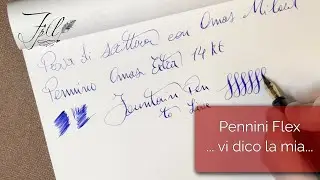 Prova di scrittura con Omas Milord
Pennino Omas Extra 14 kt
Fountain Pen
to Live
Pennini Flex
... vi dico la mia...